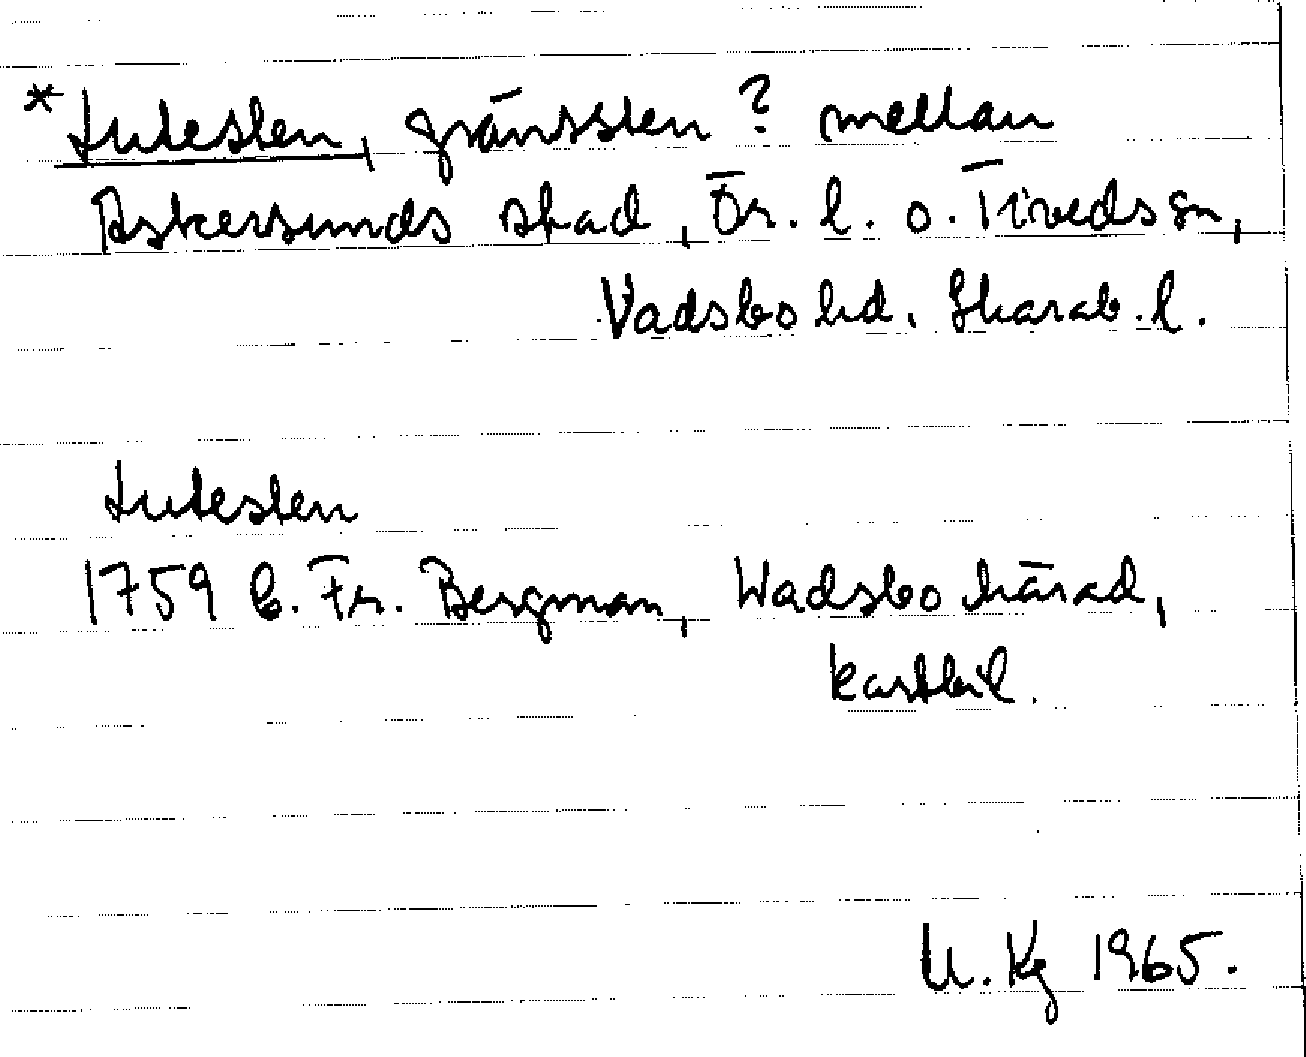 *Lutesten, gränssten? mellan
Askersunds stad, Ör. l. o. Tiveds sn,
Vadsbo hd. Skarab. l.
Lutesten
1759 C. Fr. Bergman, Wadsbo härad,
kartbil.
U. Kg 1965.